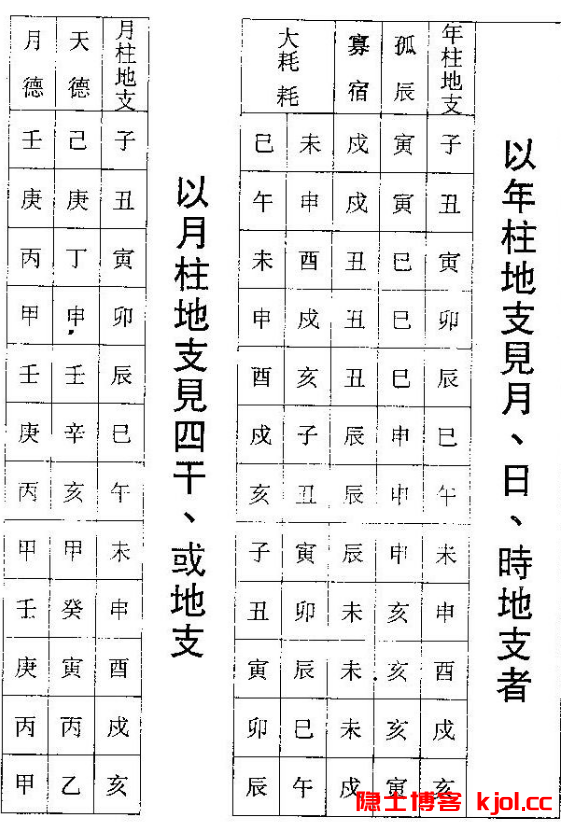 以年柱地支見月、日、時地支者
年柱地支 子 丑 寅 卯 辰 巳 午 未 申 酉 戌 亥
孤辰 寅 寅 巳 巳 巳 申 申 申 亥 亥 亥 寅
寡宿 戌 戌 丑 丑 丑 辰 辰 辰 未 未 未 戌
大耗耗
未 申 酉 戌 亥 子 丑 寅 卯 辰 巳 午
巳 午 未 申 酉 戌 亥 子 丑 寅 卯 辰
以月柱地支見四干、或地支
月柱地支 子 丑 寅 卯 辰 巳 午 未 申 酉 戌 亥
天德 己 庚 丁 申 壬 辛 亥 甲 癸 寅 丙 乙
月德 壬 庚 丙 甲 壬 庚 丙 甲 壬 庚 丙 甲
隐士博客 kjol.cc